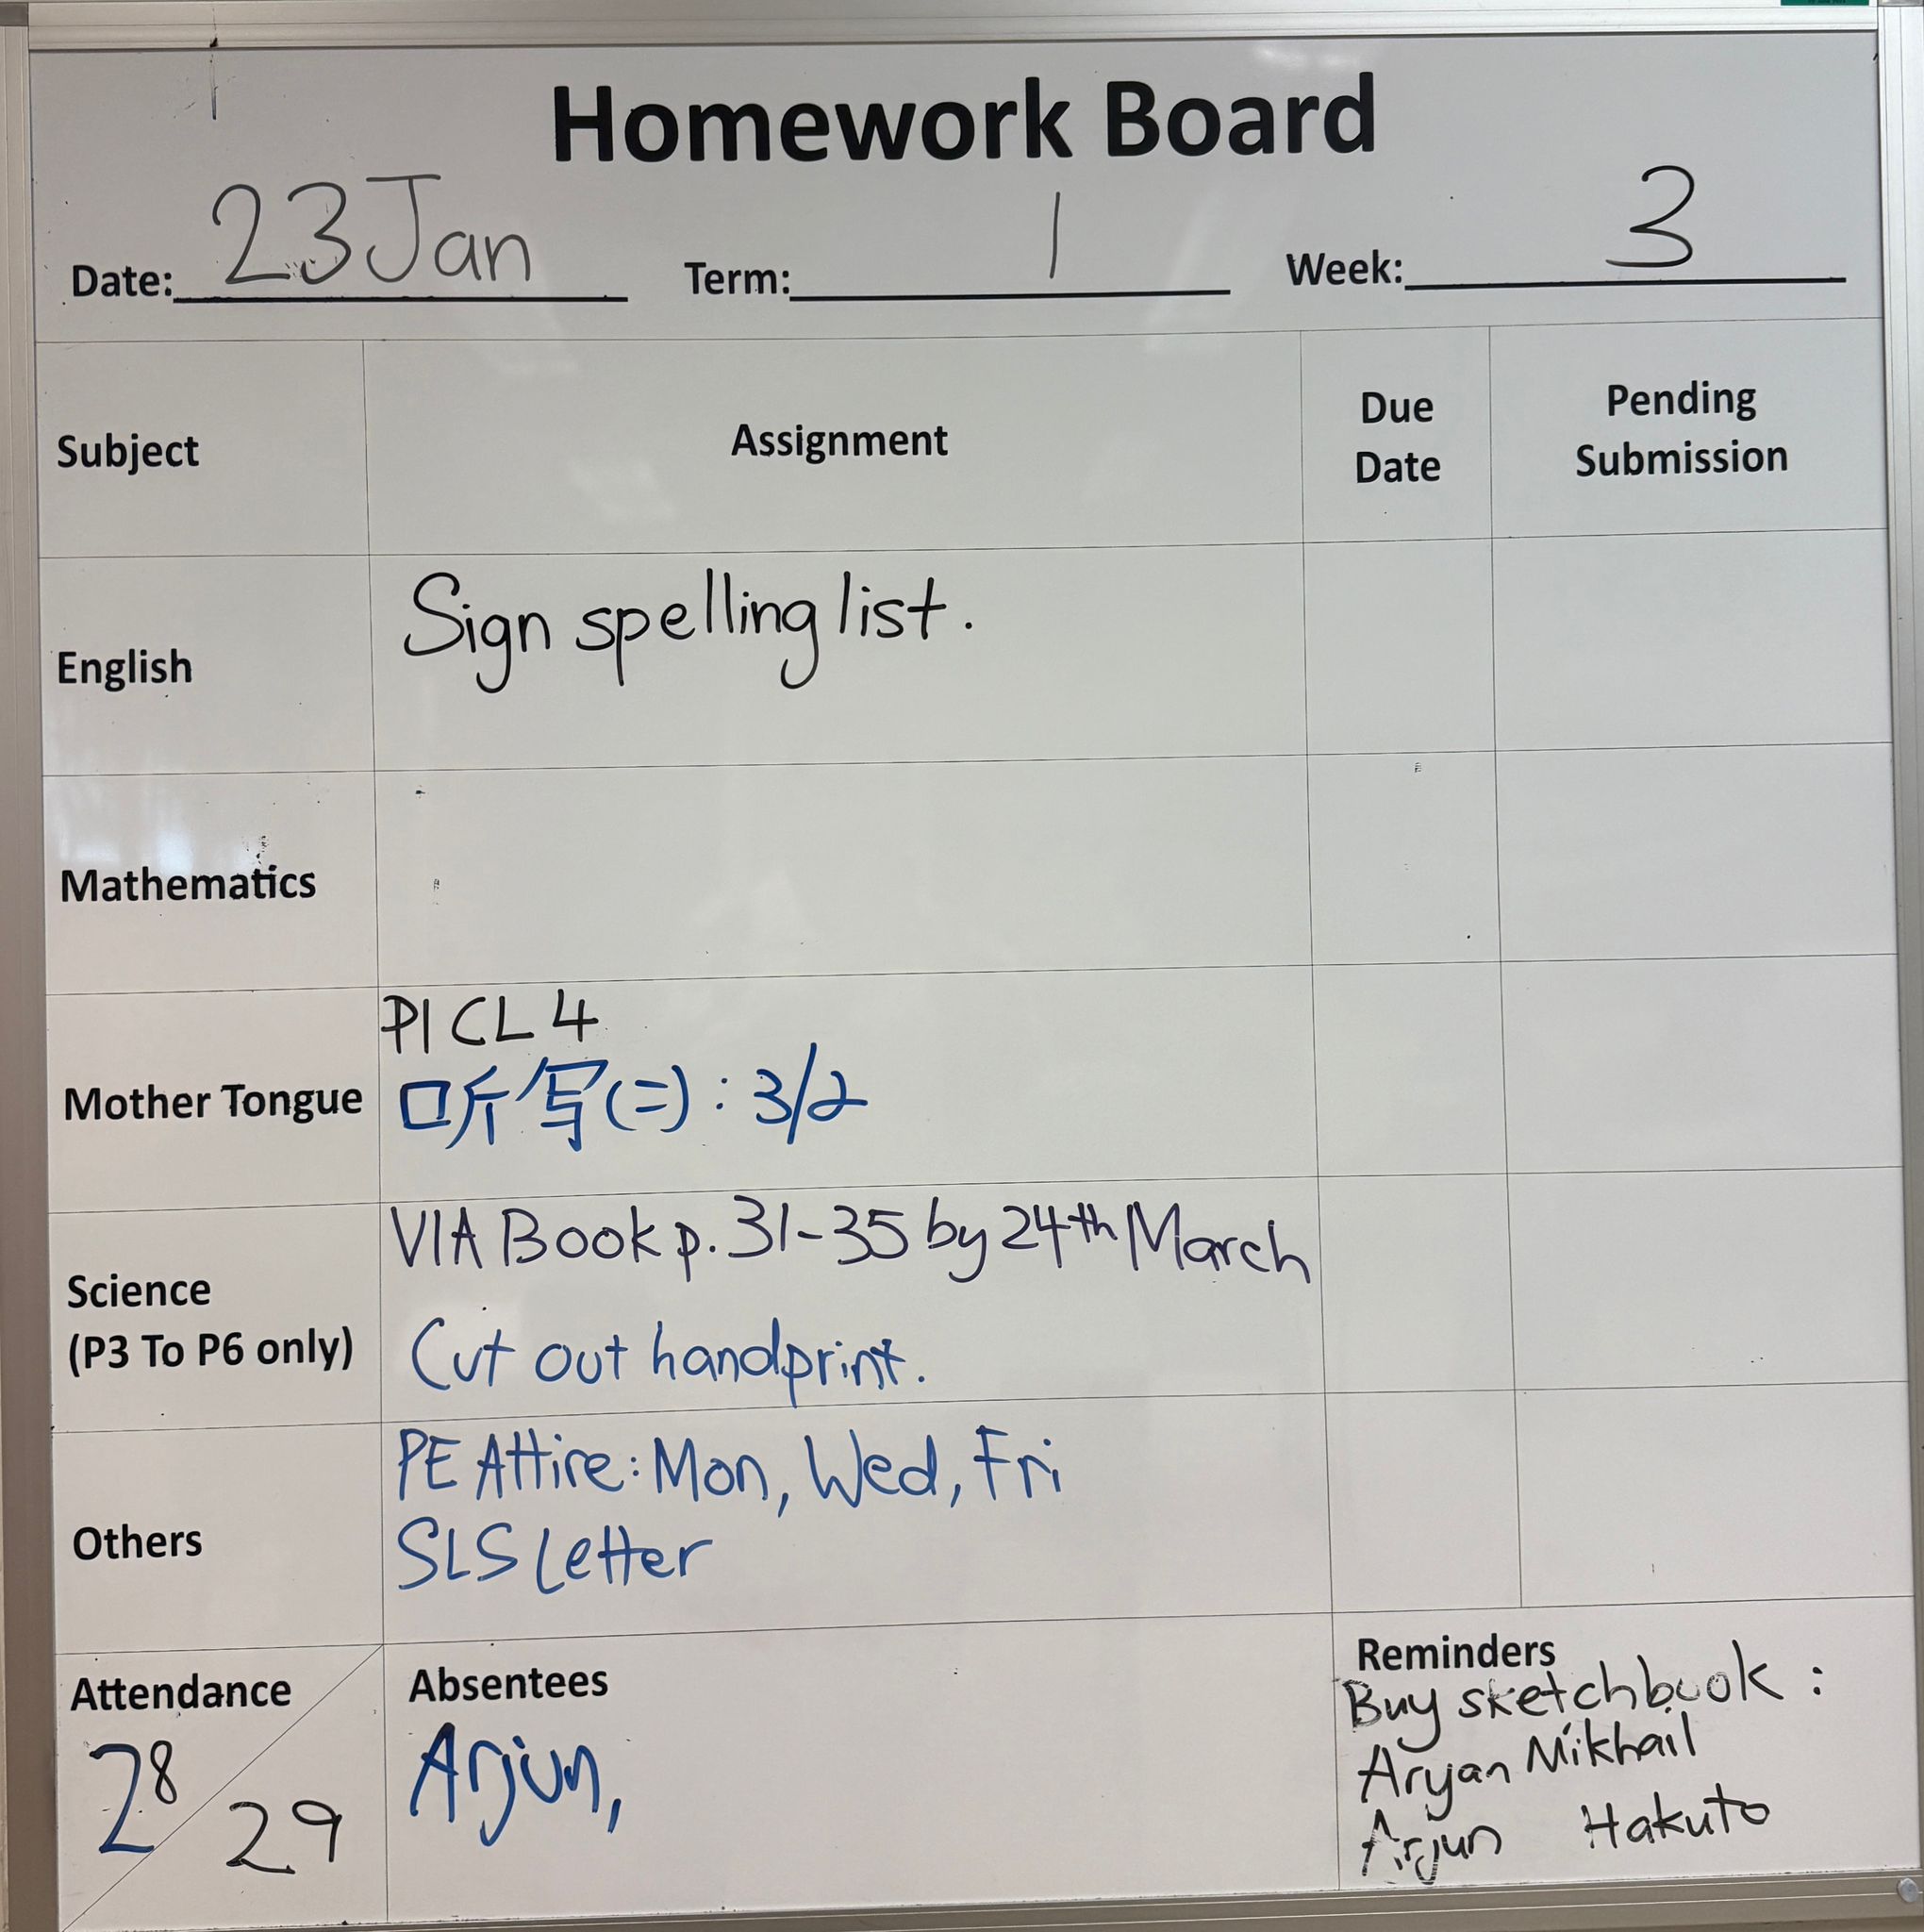 Homework Board
Date: 23 Jan Term: 1 Week: 3
Subject Assignment Due Date Pending Submission
English Sign spelling list.
Mathematics
Mother Tongue
PI CL 4
听写(二): 3/2
Science
(P3 To P6 only)
VIA Book p. 31-35 by 24th March
Cut out handprint.
Others
PE Attire: Mon, Wed, Fri
SLS Letter
Attendance
28
29
Absentees
Arjun,
Reminders
Buy sketchbook:
Aryan Mikhail
Arjun Hakuto